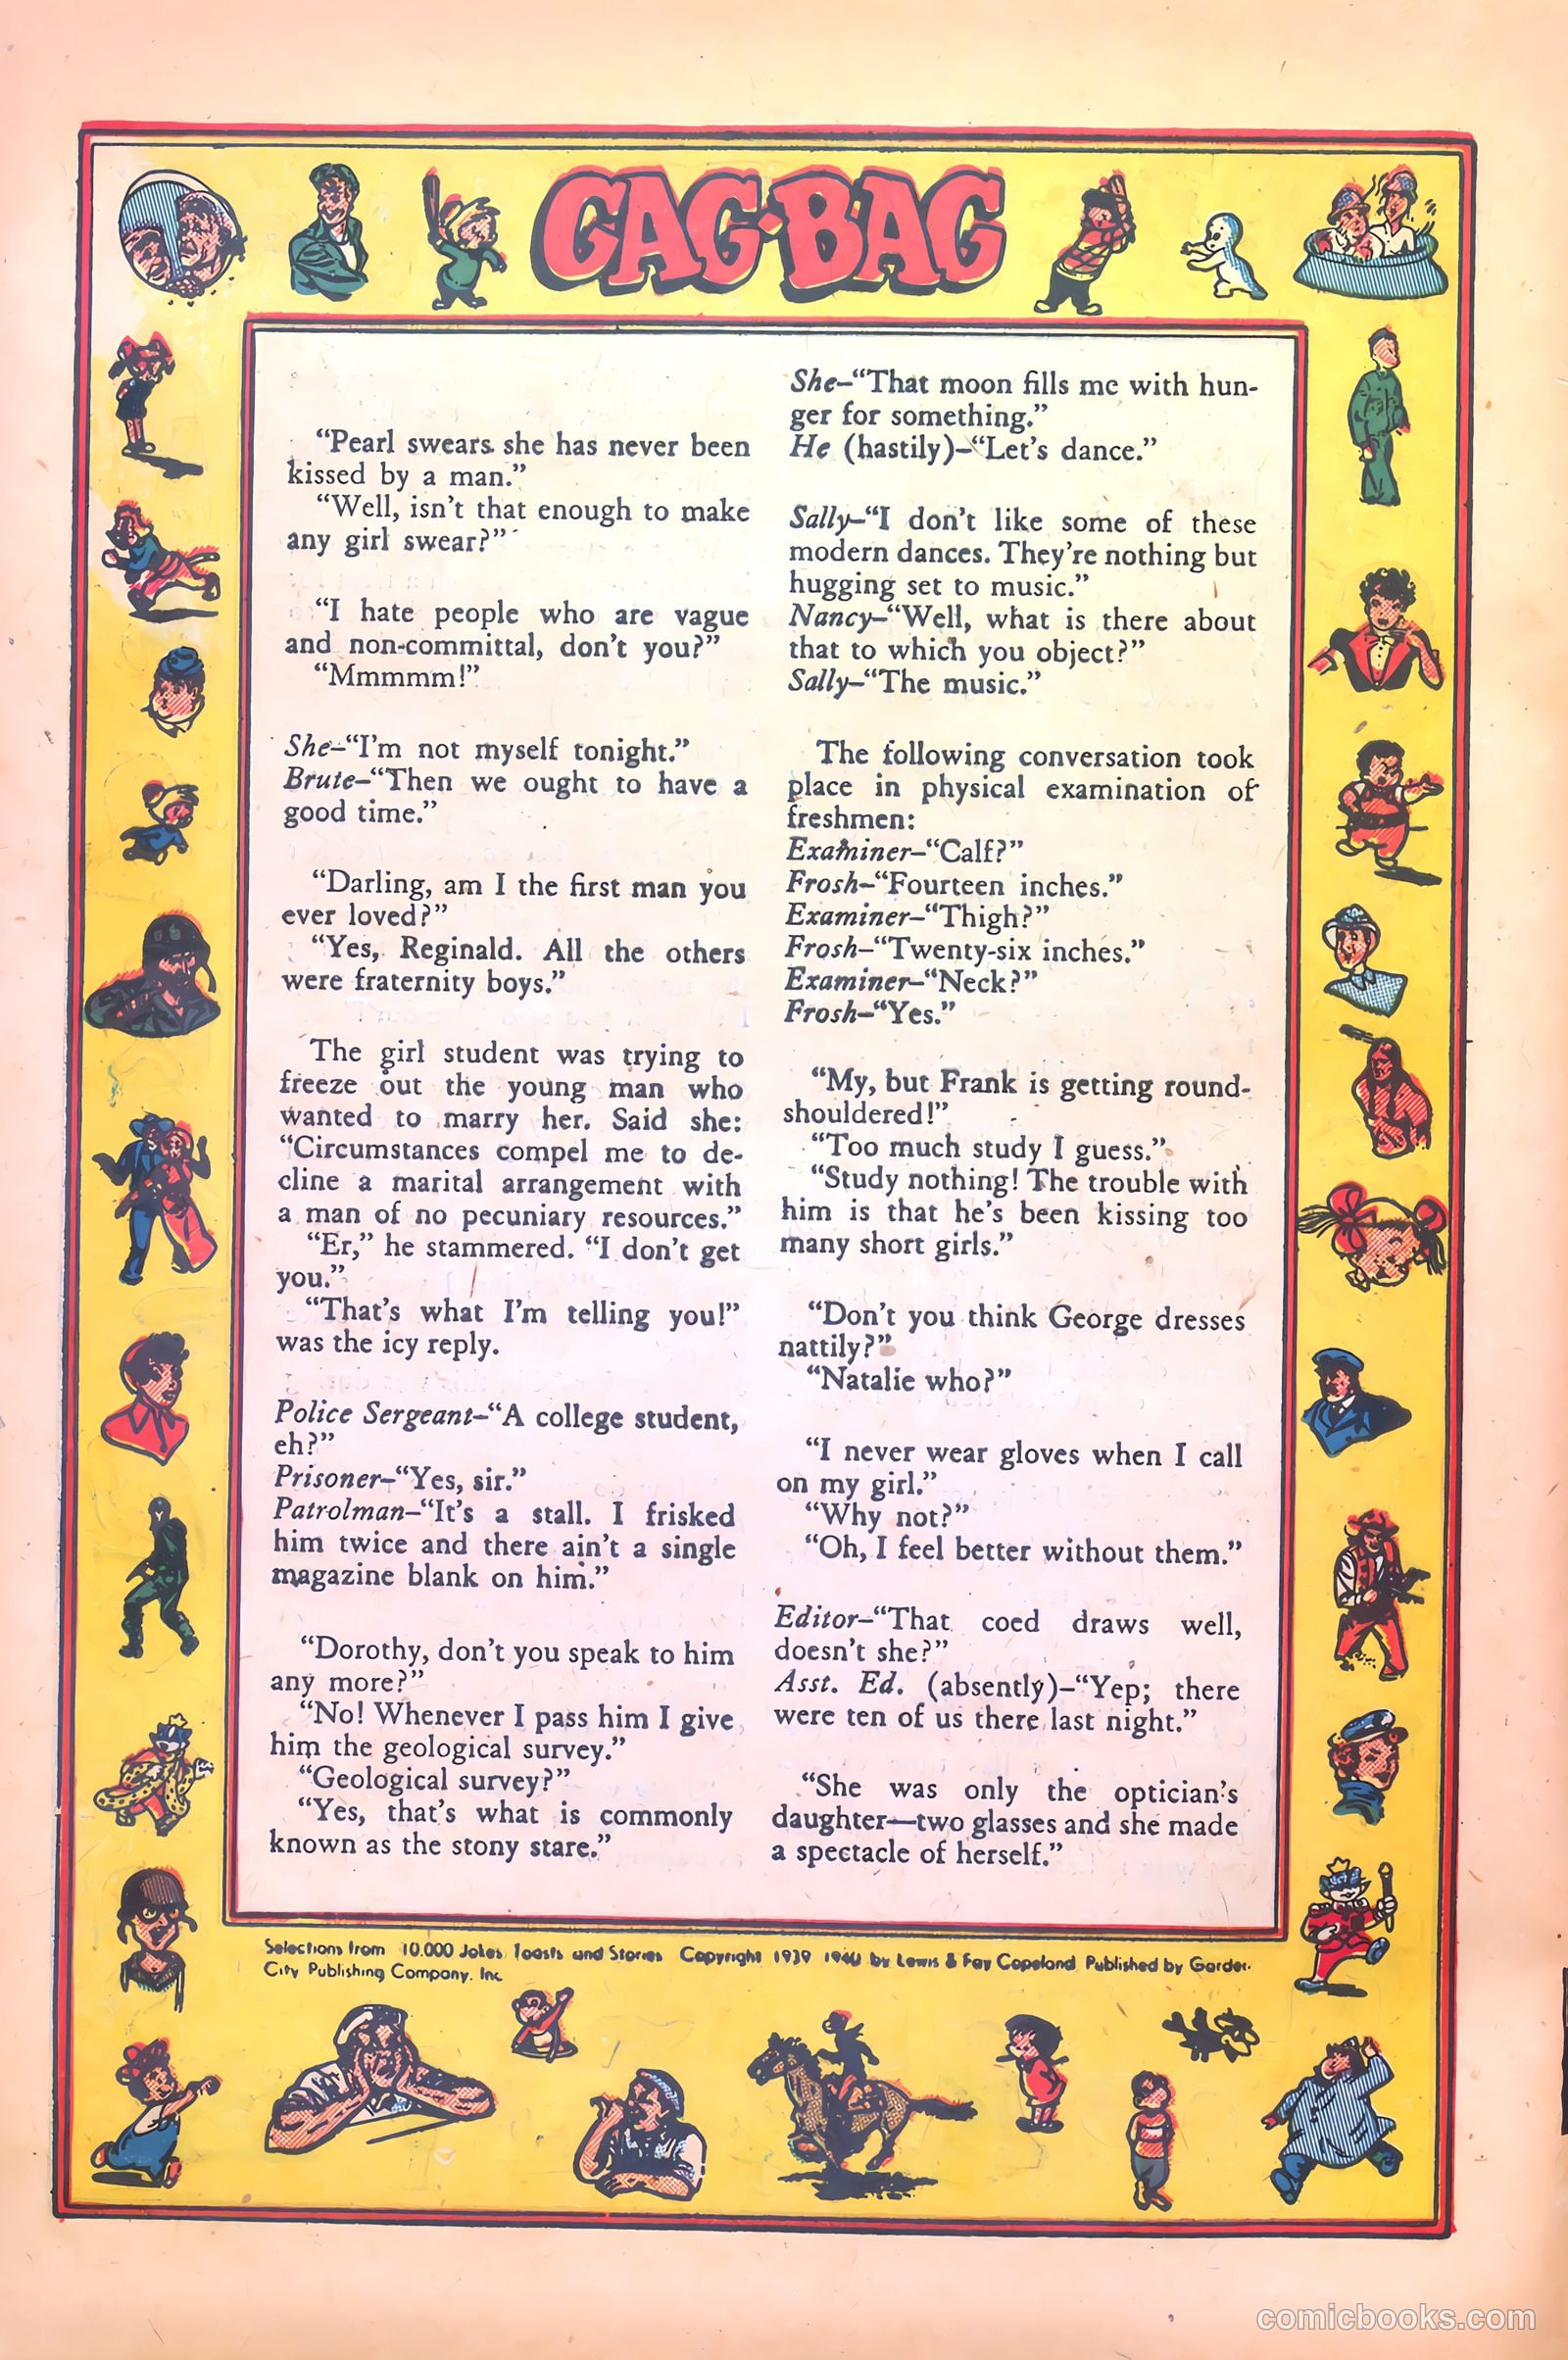 GAG·BAG
“Pearl swears she has never been
kissed by a man.”
“Well, isn't that enough to make
any girl swear?”
“I hate people who are vague
and non-committal, don't you?”
“Mmmmm!”
She–“I'm not myself tonight.”
Brute–“Then we ought to have a
good time.”
“Darling, am I the first man you
ever loved?”
“Yes, Reginald. All the others
were fraternity boys.”
The girl student was trying to
freeze out the young man who
wanted to marry her. Said she:
“Circumstances compel me to de-
cline a marital arrangement with
a man of no pecuniary resources.”
“Er,” he stammered. “I don't get
you.”
“That's what I'm telling you!”
was the icy reply.
Police Sergeant–“A college student,
eh?”
Prisoner–“Yes, sir.”
Patrolman–“It's a stall. I frisked
him twice and there ain't a single
magazine blank on him.”
“Dorothy, don't you speak to him
any more?”
“No! Whenever I pass him I give
him the geological survey.”
“Geological survey?”
“Yes, that's what is commonly
known as the stony stare.”
She–“That moon fills me with hun-
ger for something.”
He (hastily)–“Let's dance.”
Sally–“I don't like some of these
modern dances. They're nothing but
hugging set to music.”
Nancy–“Well, what is there about
that to which you object?”
Sally–“The music.”
The following conversation took
place in physical examination of
freshmen:
Examiner–“Calf?”
Frosh–“Fourteen inches.”
Examiner–“Thigh?”
Frosh–“Twenty-six inches.”
Examiner–“Neck?”
Frosh–“Yes.”
“My, but Frank is getting round-
shouldered!”
“Too much study I guess.”
“Study nothing! The trouble with
him is that he's been kissing too
many short girls.”
“Don't you think George dresses
nattily?”
“Natalie who?”
“I never wear gloves when I call
on my girl.”
“Why not?”
“Oh, I feel better without them.”
Editor–“That coed draws well,
doesn't she?”
Asst. Ed. (absently)–“Yep; there
were ten of us there last night.”
“She was only the optician's
daughter—two glasses and she made
a spectacle of herself.”
Selections from 10.000 Jokes, Toasts and Stories Copyright 1939 1940 by Lewis & Fay Copeland Published by Garden
City Publishing Company. Inc
comicbooks.com